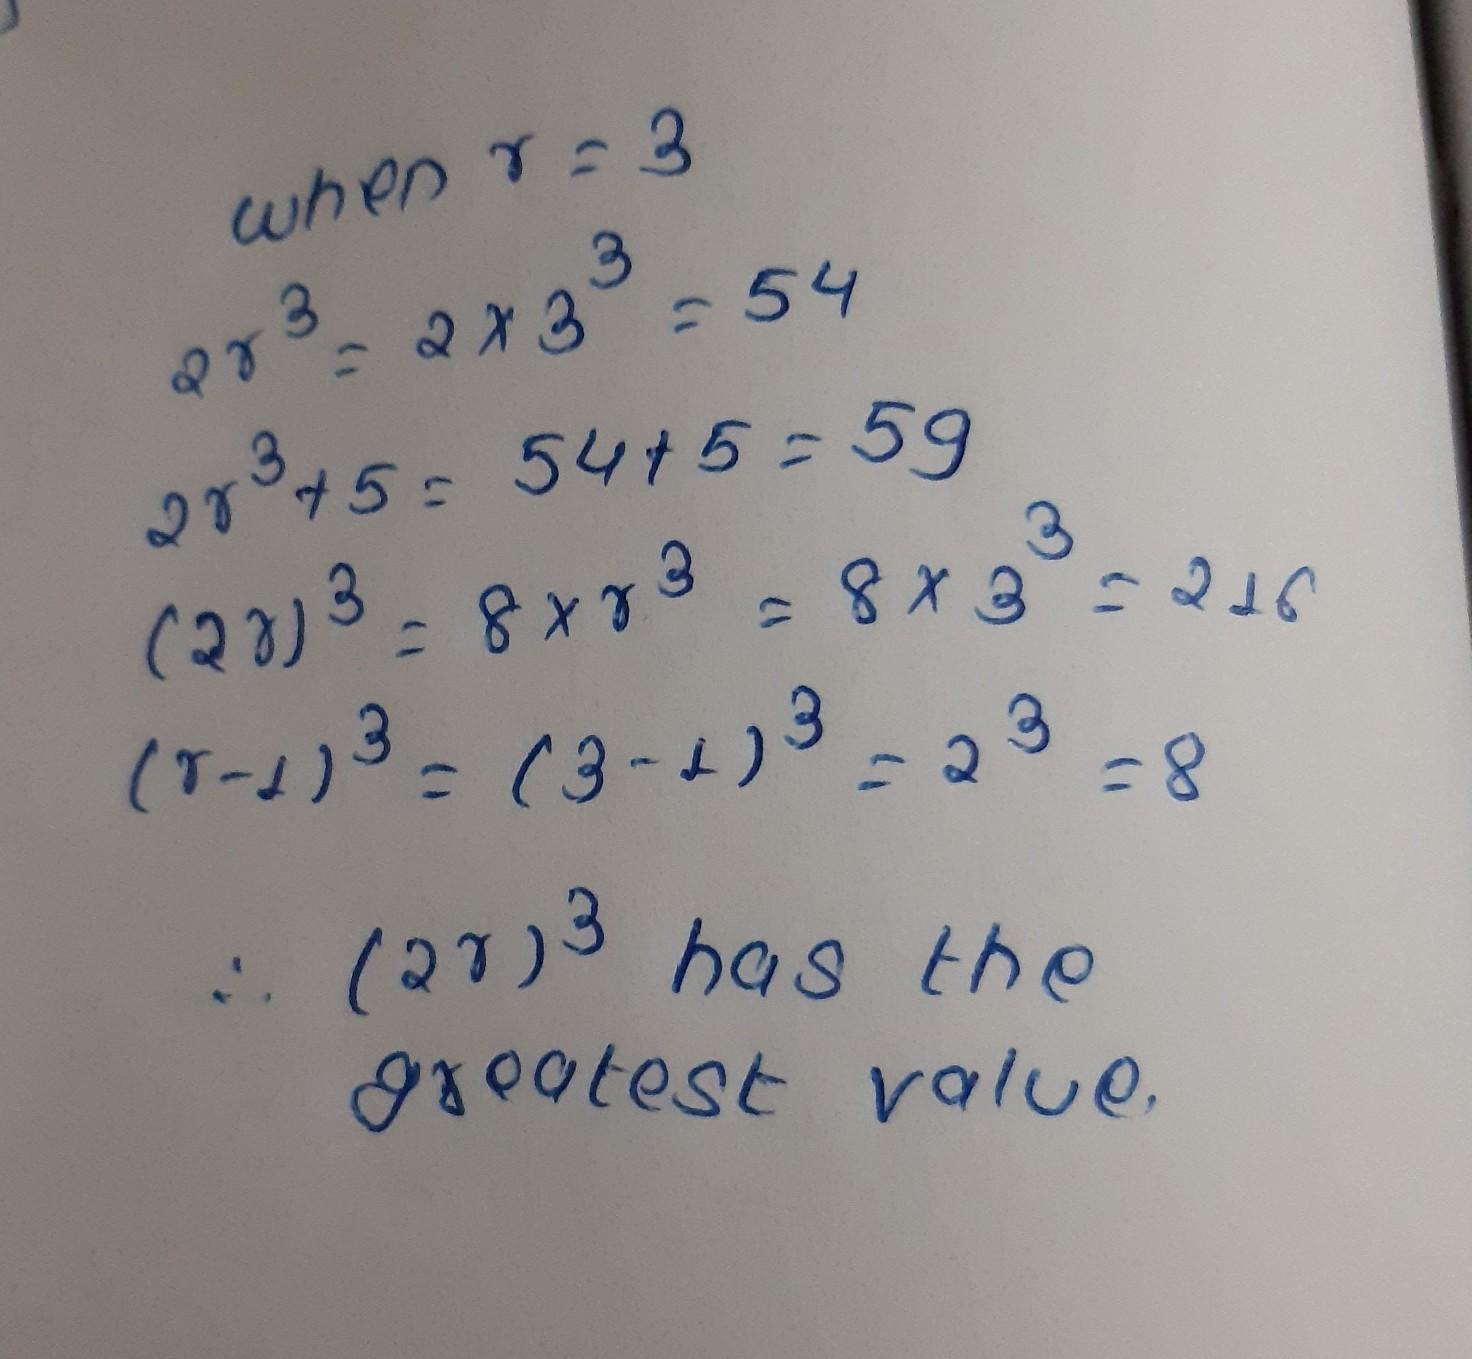 when r = 3
2r³ = 2 × 3³ = 54
2r³ + 5 = 54 + 5 = 59
(2r)³ = 8 × r³ = 8 × 3³ = 216
(r-1)³ = (3-1)³ = 2³ = 8
∴ (2r)³ has the
greatest value.